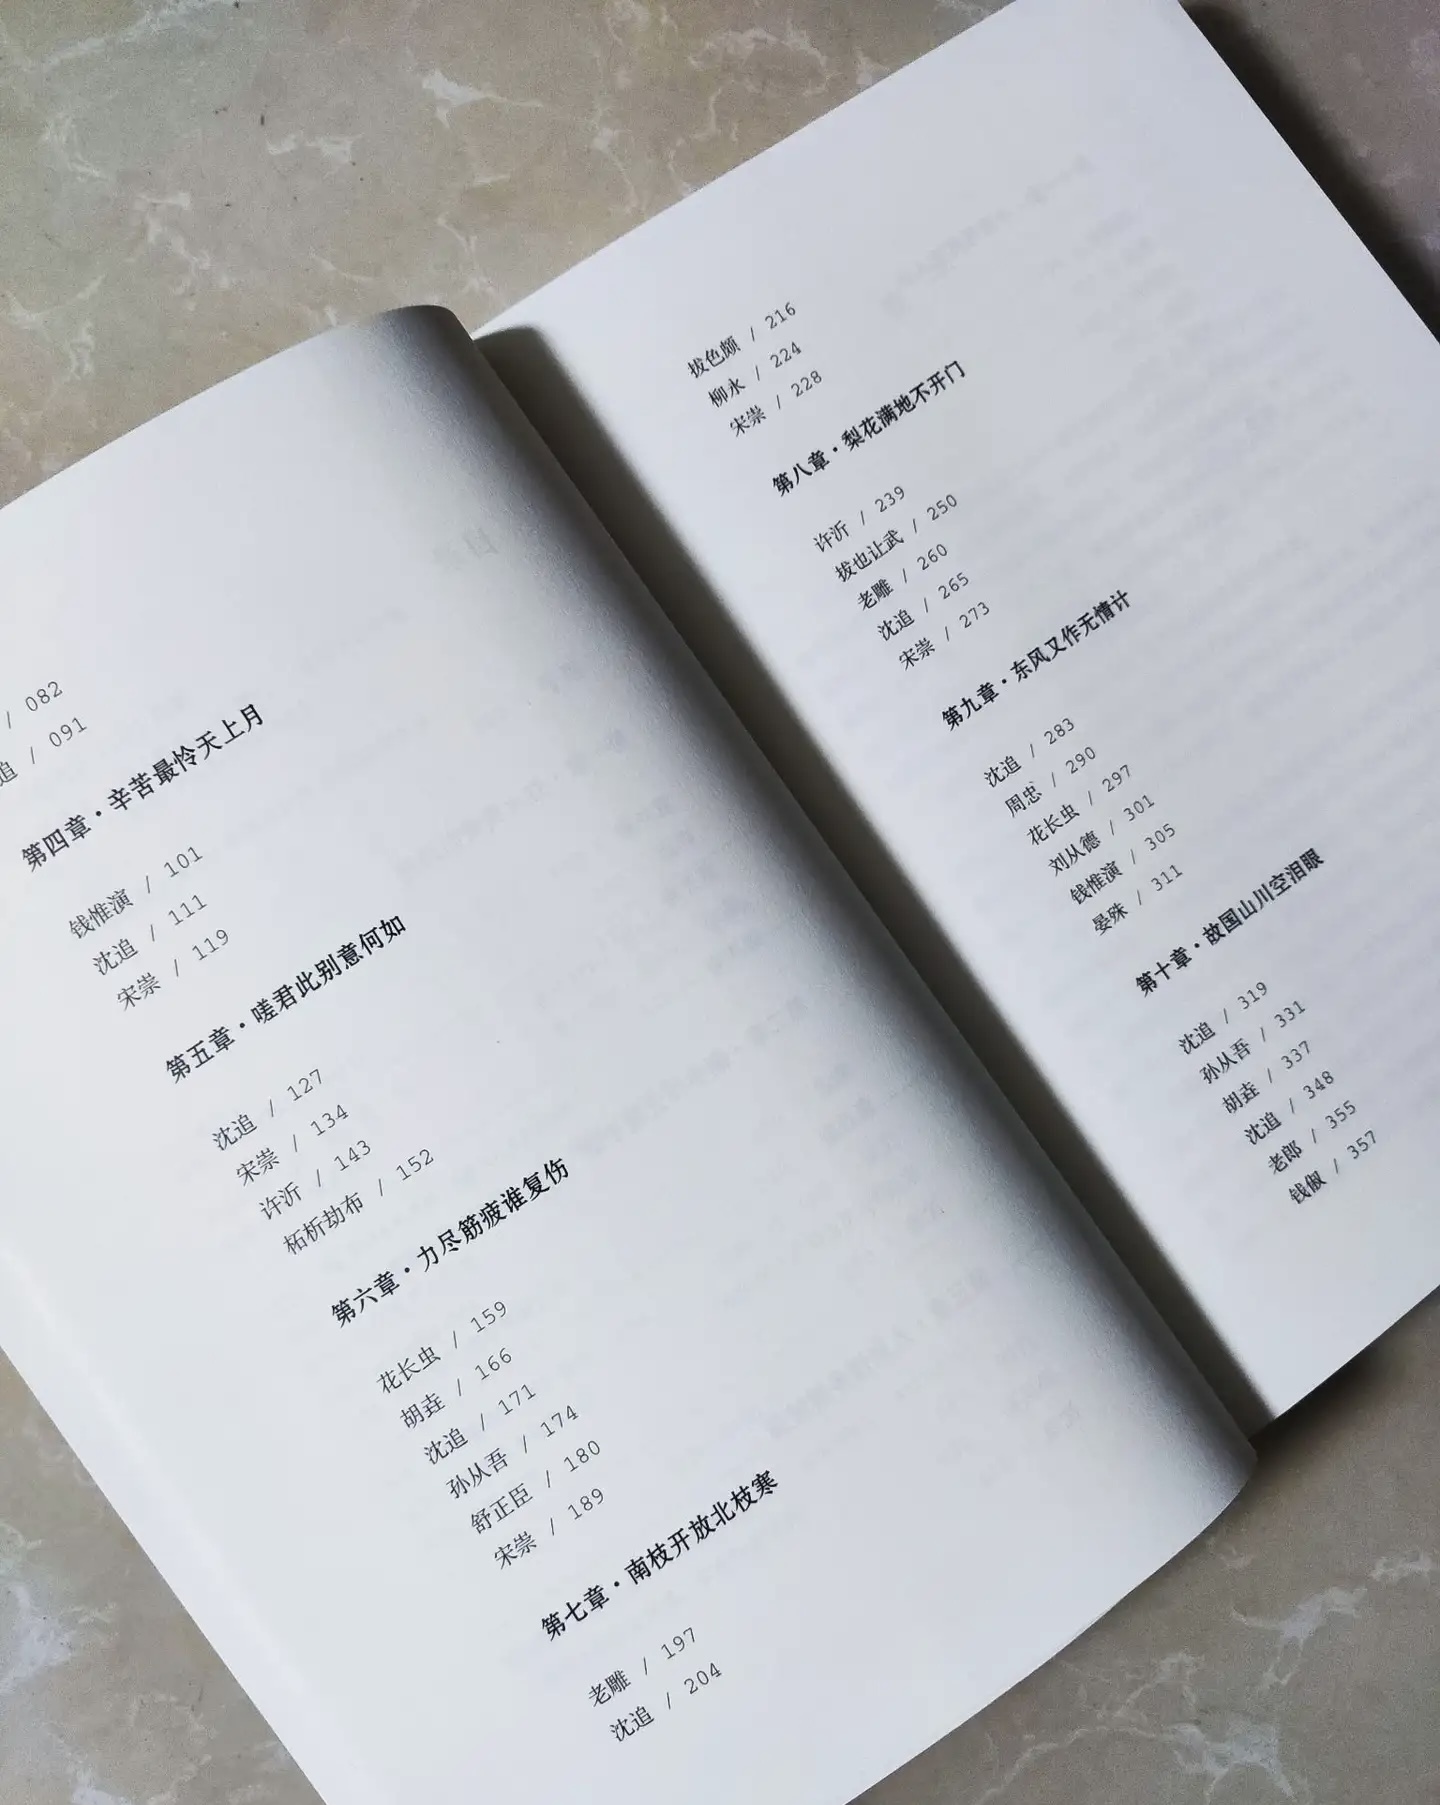 / 082
追 / 091
第四章·辛苦最怜天上月
钱惟演 / 101
沈追 / 111
宋崇 / 119
第五章·嗟君此别意何如
沈追 / 127
宋崇 / 134
许沂 / 143
柘析劫布 / 152
第六章·力尽筋疲谁复伤
花长虫 / 159
胡垚 / 166
沈追 / 171
孙从吾 / 174
舒正臣 / 180
宋崇 / 189
第七章·南枝开放北枝寒
老雕 / 197
沈追 / 204
拔色颇 / 216
柳永 / 224
宋崇 / 228
第八章·梨花满地不开门
许沂 / 239
拔也让武 / 250
老雕 / 260
沈追 / 265
宋崇 / 273
第九章·东风又作无情计
沈追 / 283
周忠 / 290
花长虫 / 297
刘从德 / 301
钱惟演 / 305
晏殊 / 311
第十章·故国山川空泪眼
沈追 / 319
孙从吾 / 331
胡垚 / 337
沈追 / 348
老郎 / 355
钱俶 / 357